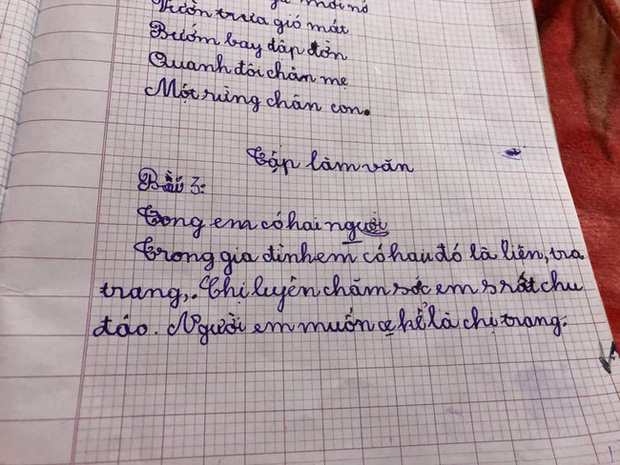 mới nở
Vườn trưa gió mát
Bướm bay dập dờn
Quanh đôi chân mẹ
Một rừng chân con.
Tập làm văn
Bài 3:
Tong em có hai người
Trong gia đình em có hai đó là liên, tra
trang,. Chị luyên chăm sóc em s rất chu
đáo. Người em muốn kể là chị trang.